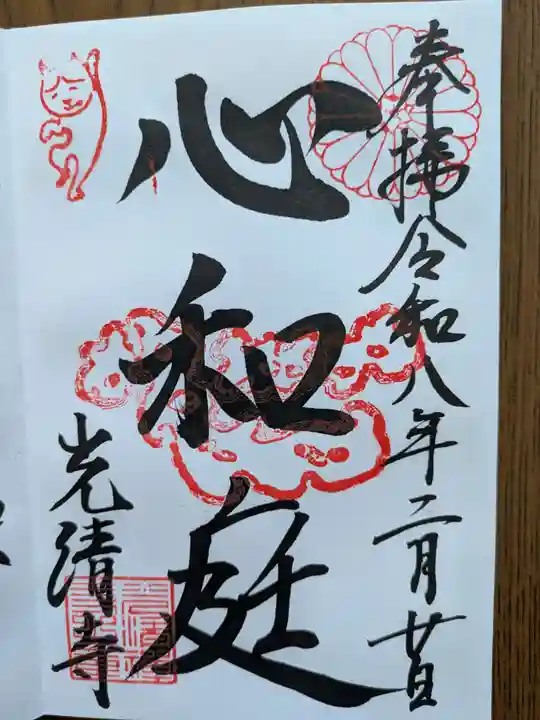 奉拝令和八年二月廿日
心和庭
光清寺